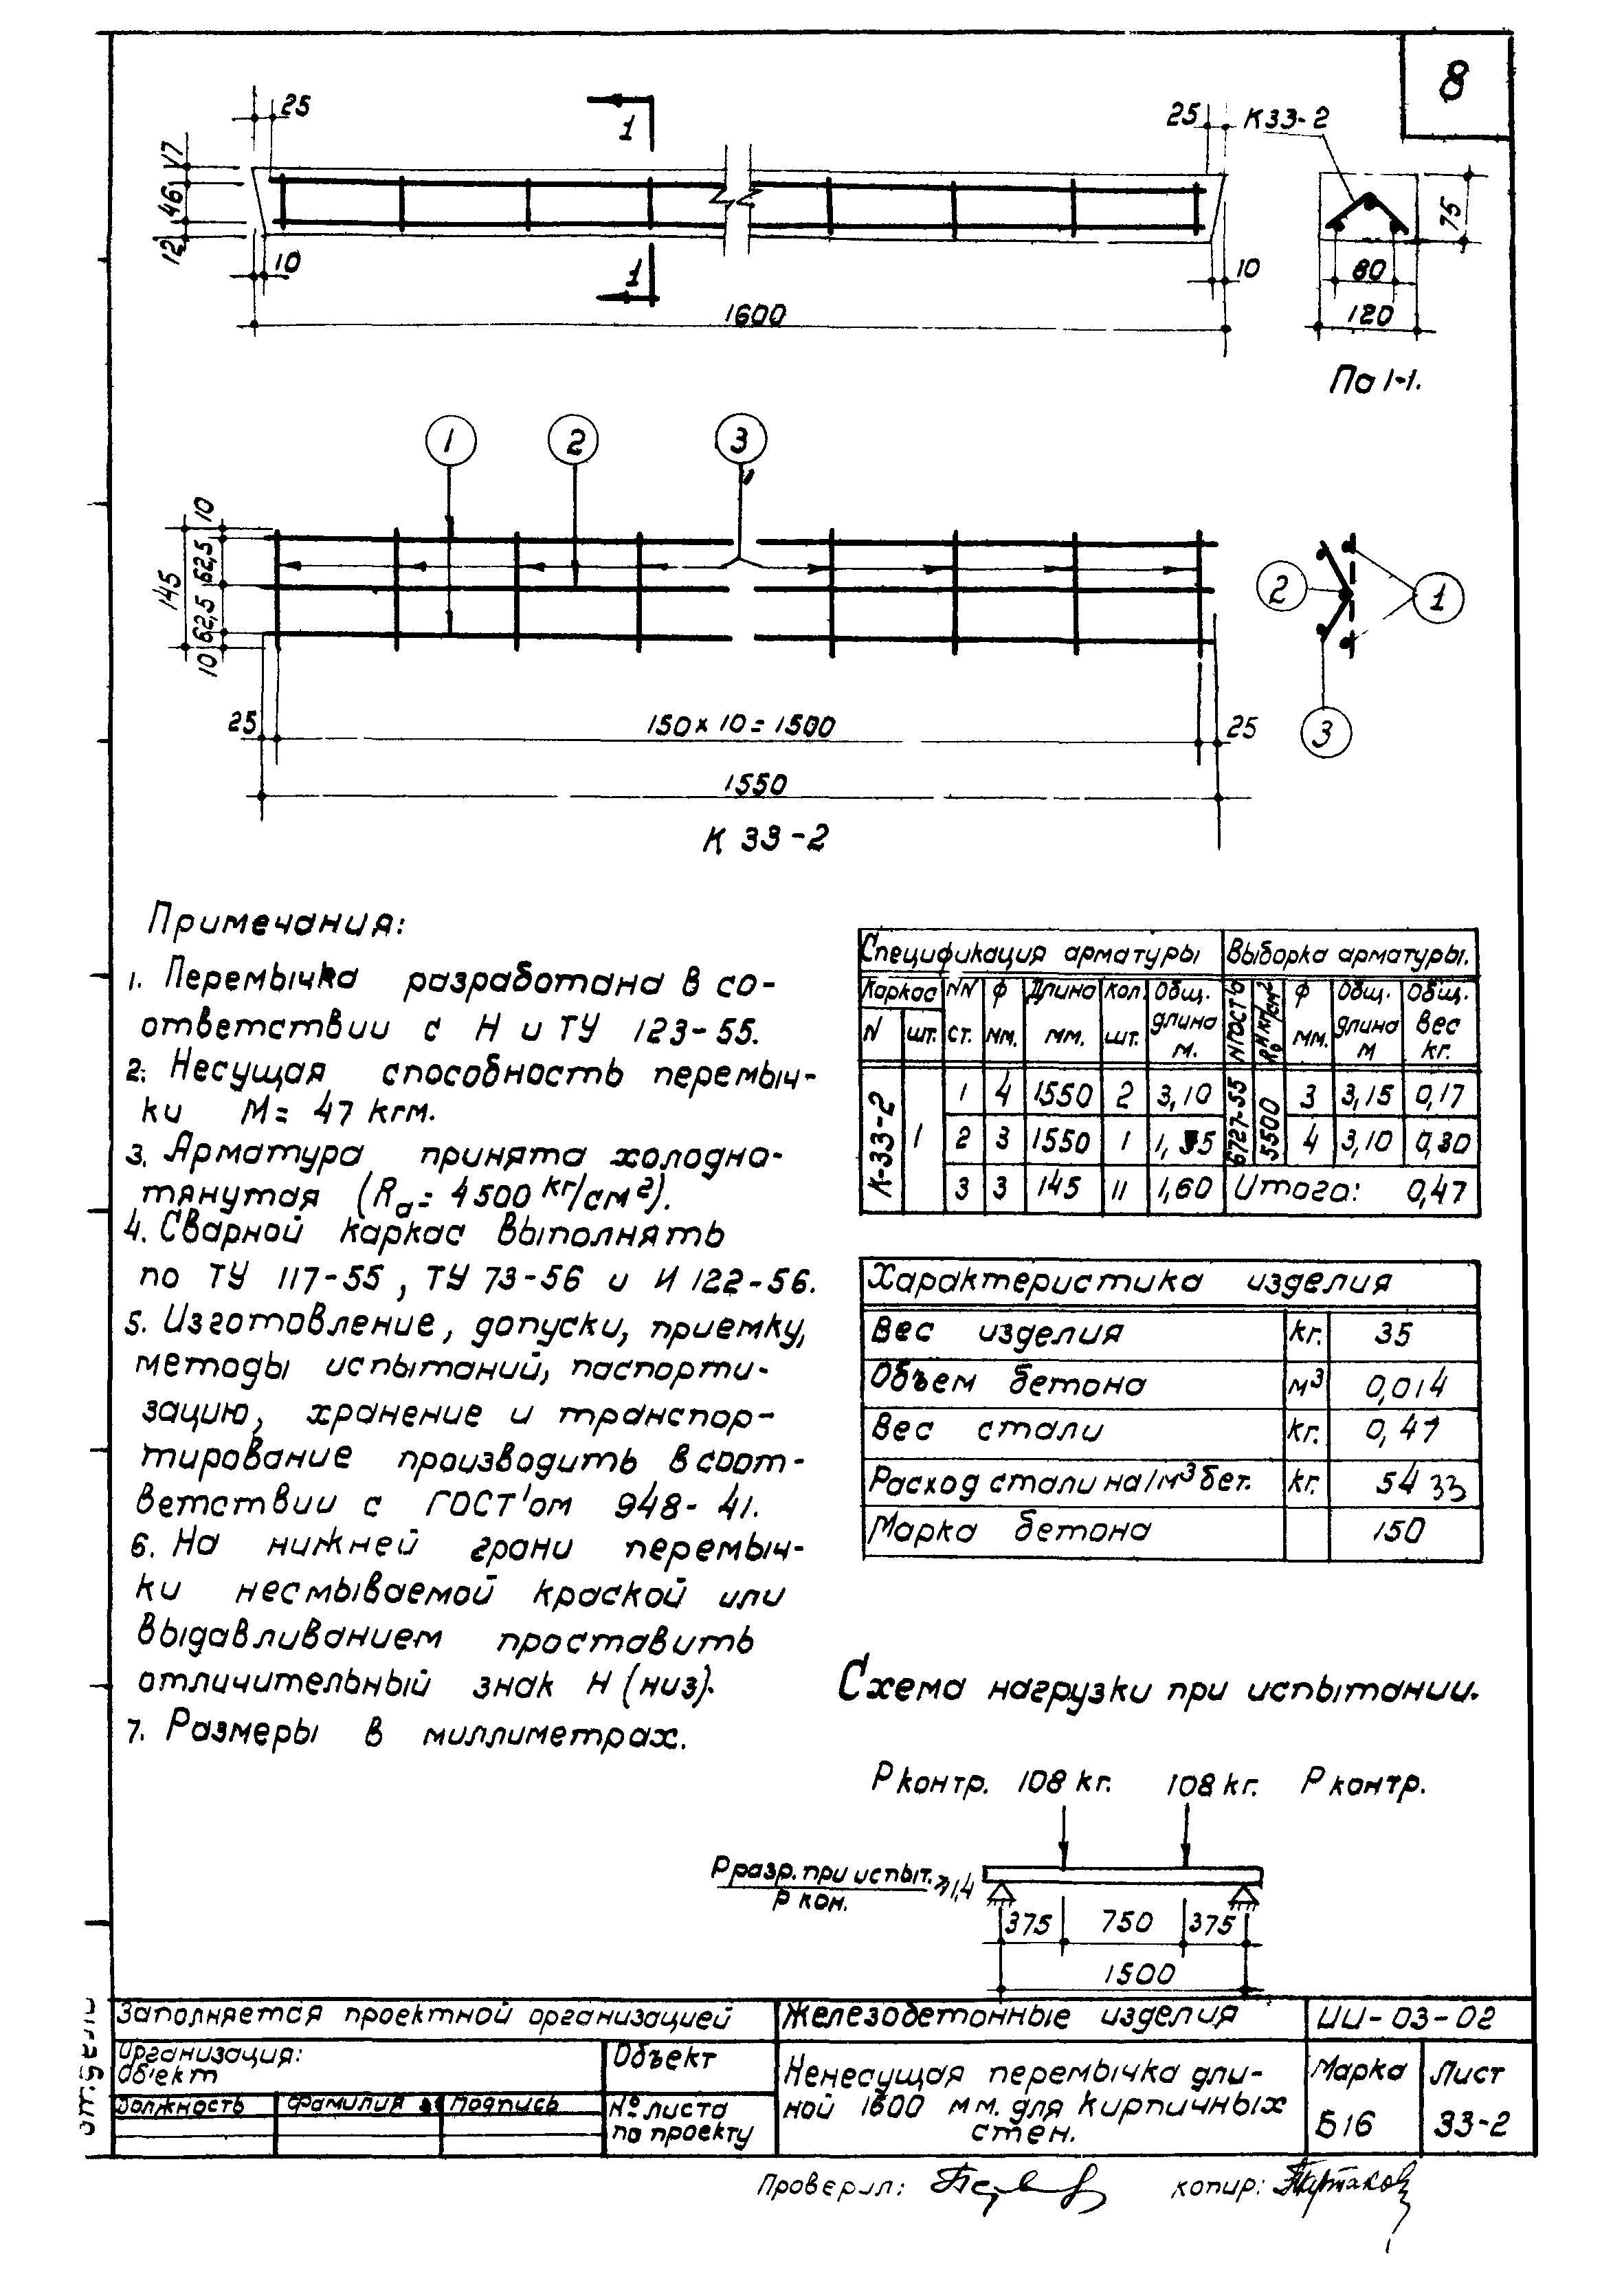 8
25
1
25
К33-2
17
46
12
10
1
10
1600
75
80
120
По 1-1.
1
2
3
10
62,5
62,5
10
145
2
1
3
25
150 х 10 = 1500
25
1550
К 33-2
Примечания:
1. Перемычка разработана в со-
ответствии с Н и ТУ 123-55.
2. Несущая способность перемыч-
ки М = 47 кгм.
3. Арматура принята холодно-
тянутая (Rа = 4500 кг/см²).
4. Сварной каркас выполнять
по ТУ 117-55, ТУ 73-56 и И 122-56.
5. Изготовление, допуски, приемку,
методы испытаний, паспорти-
зацию, хранение и транспор-
тирование производить в соот-
ветствии с ГОСТ'ом 948-41.
6. На нижней грани перемыч-
ки несмываемой краской или
выдавливанием проставить
отличительный знак Н (низ).
7. Размеры в миллиметрах.
Спецификация арматуры Выборка арматуры.
Каркас NN Ф Длина Кол. Общ. NГОСТ'а кг/см² Ф Общ. Общ.
N шт. ст. мм. мм. шт. длина м. мм. длина м вес кг.
К-33-2 1 1 4 1550 2 3,10 6727-55 5500 3 3,15 0,17
2 3 1550 1 4 3,10 0,30
3 3 145 11 1,60 Итого: 0,47
Характеристика изделия
Вес изделия кг. 35
Объем бетона м³ 0,014
Вес стали кг. 0,47
Расход стали на 1м³ бет. кг. 54 33
Марка бетона 150
Схема нагрузки при испытании.
Р контр. 108 кг. 108 кг. Р контр.
Р разр. при испыт. ≥ 1,4
Р кон.
375 750 375
1500
Заполняется проектной организацией
Организация:
Об'ект
Объект
Должность Фамилия Подпись
№ листа
по проекту
Железобетонные изделия
ИИ-03-02
Ненесущая перемычка дли-
ной 1600 мм. для кирпичных
стен.
Марка
Б16
Лист
33-2
Проверил:
копир: